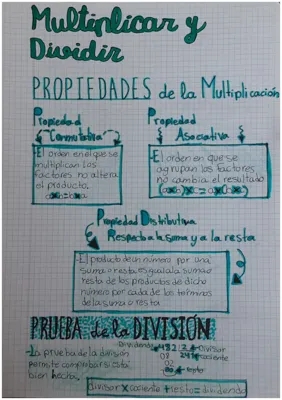 Multiplicar y
Dividir
PROPIEDADES de la Multiplicación
Propiedad
Conmutativa
El orden en el que se
multiplican los
factores no altera
el producto.
Propiedad
Asociativa
El orden en que se
agrupan los factores
no cambia el resultado
Propiedad Distributiva
Respecto a la suma y a la resta
El producto de un número por una
suma o resta es igual a la suma o
resta de los productos de dicho
número por cada de los terminos
de la suma o resta
PRUEBA de la DIVISIÓN
Dividendo
divisor
La prueba de la división
permite comprobar si está
bien hecha.
cociente
resto
divisor x cociente + resto = dividendo